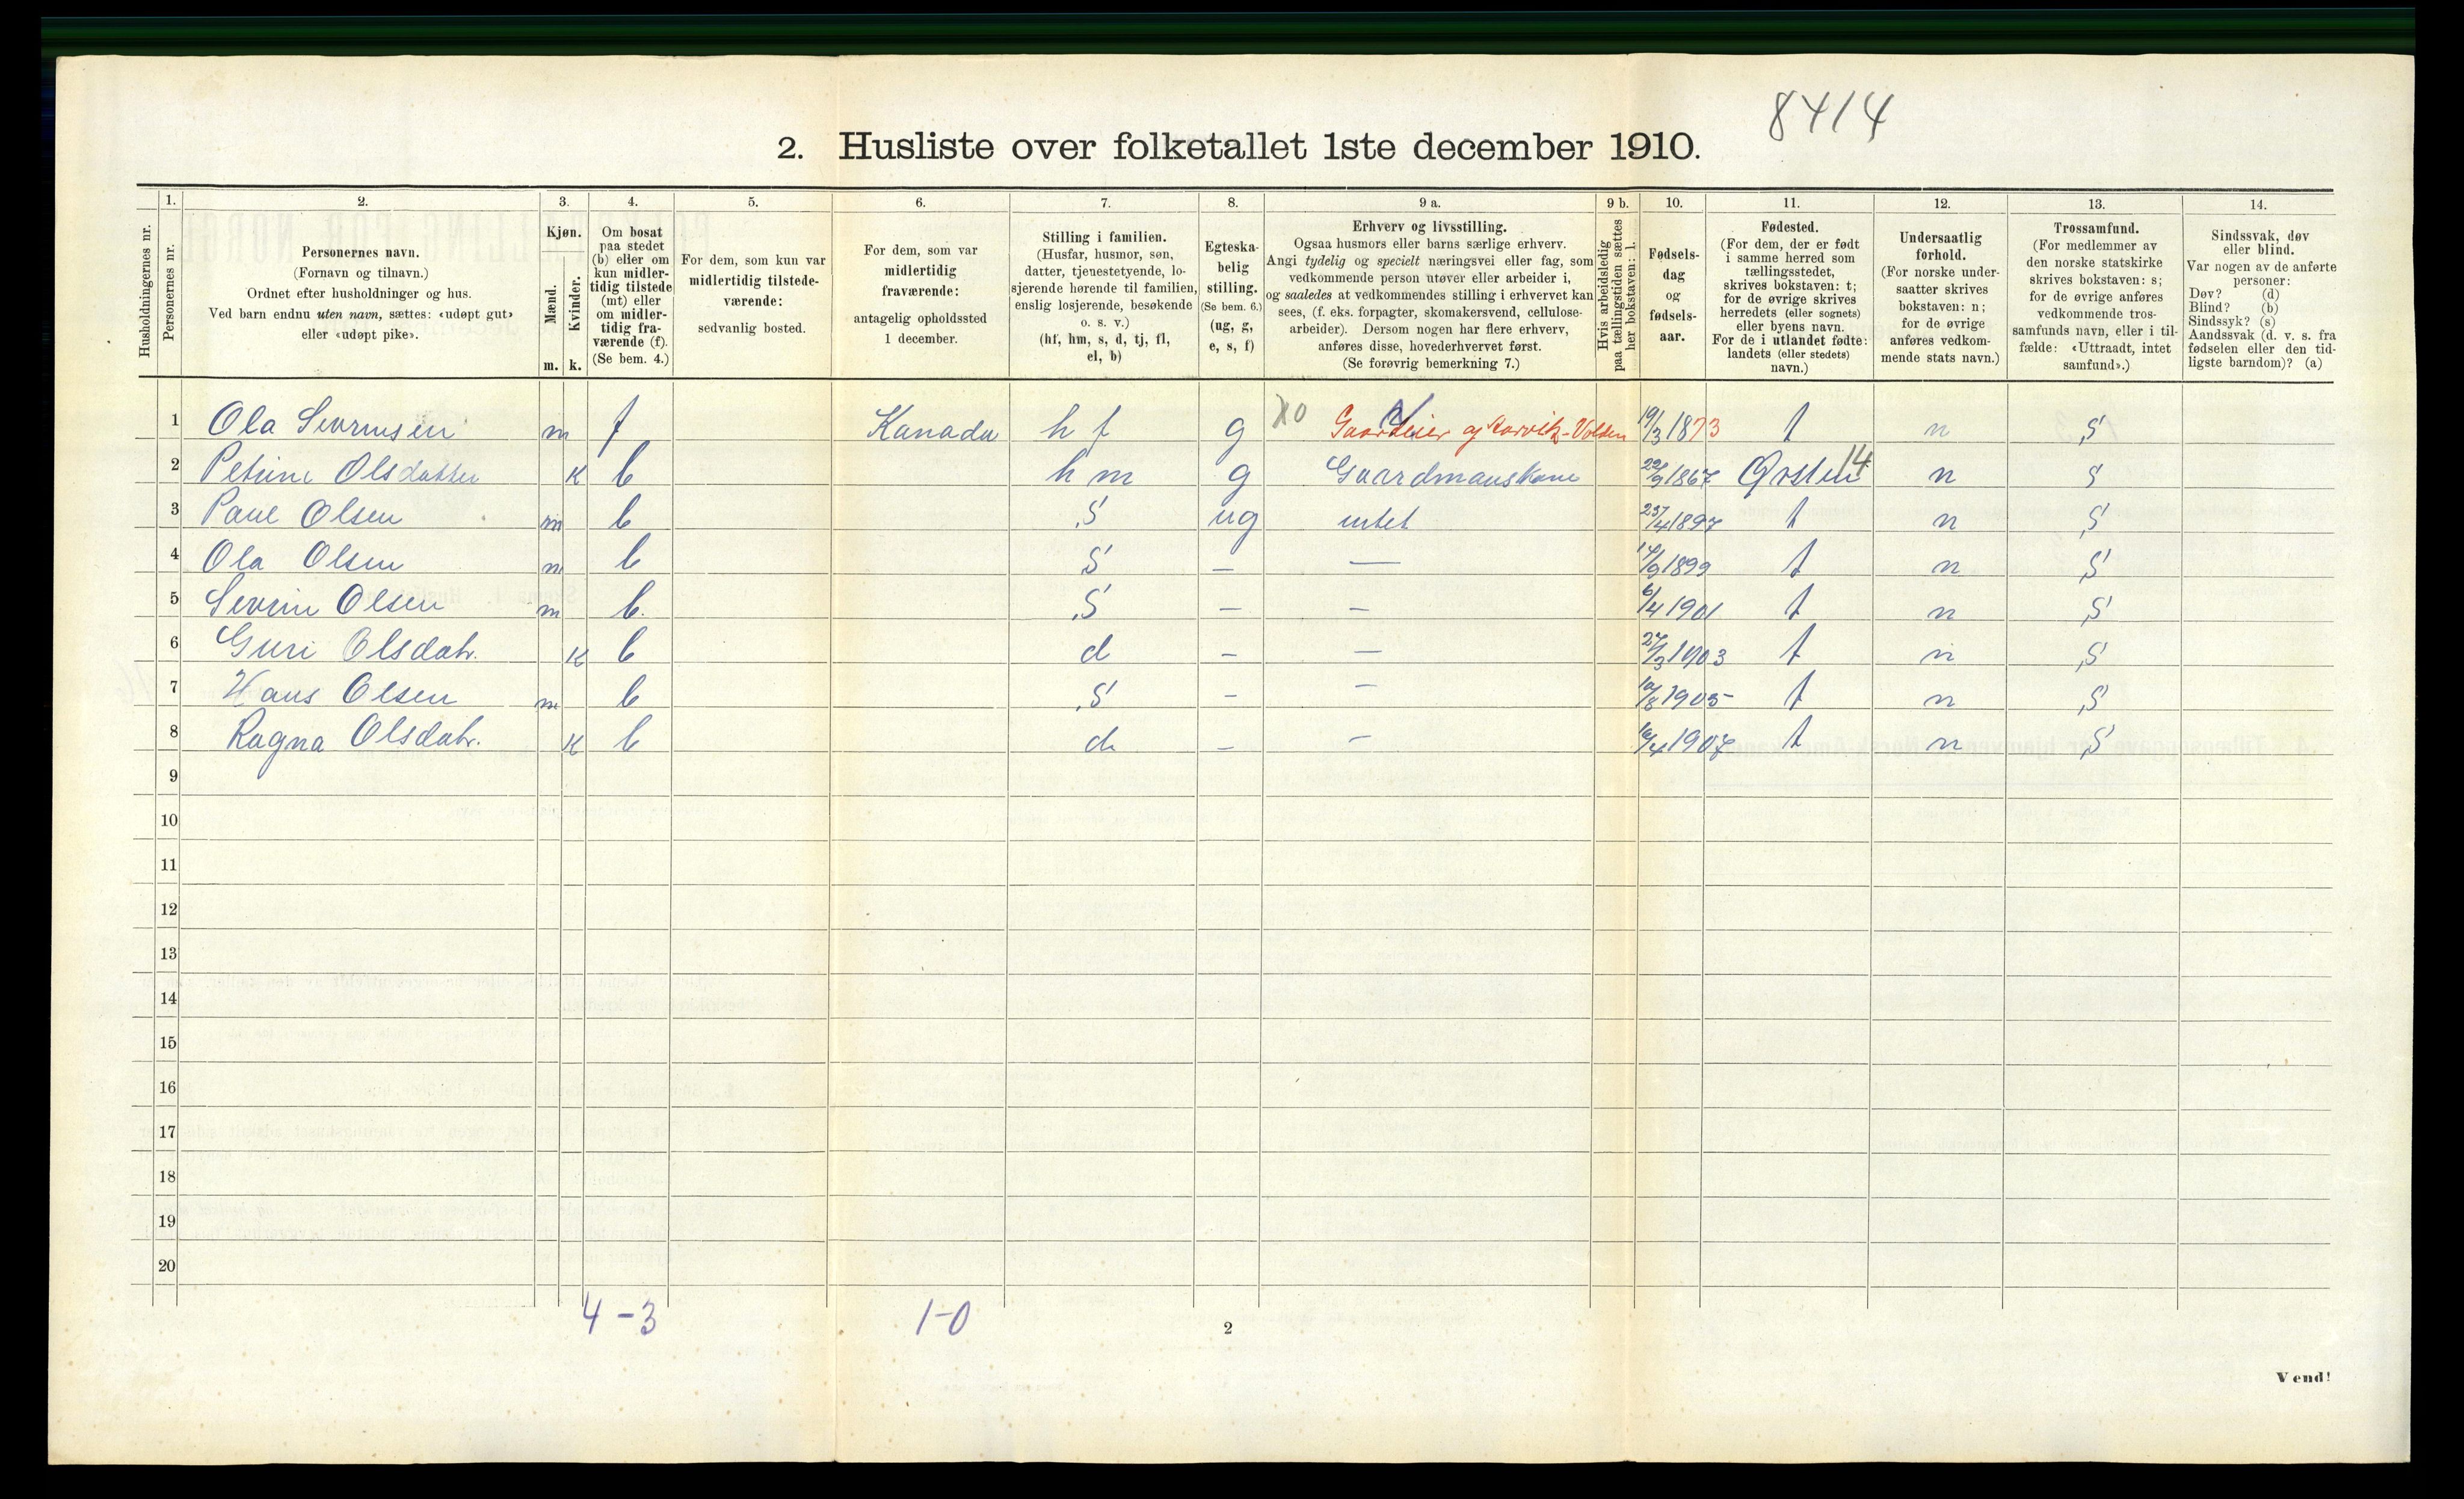 8414
2. Husliste over folketallet 1ste december 1910.
Husholdningernes nr.
1.
Personernes nr.
2.
Personernes navn.
(Fornavn og tilnavn.)
Ordnet efter husholdninger og hus.
Ved barn endnu uten navn, sættes: «udøpt gut»
eller «udøpt pike».
3.
Kjøn.
Mænd.
Kvinder.
m. k.
4.
Om bosat
paa stedet
(b) eller om
kun midler-
tidig tilstede
(mt) eller
om midler-
tidig fra-
værende (f).
(Se bem. 4.)
5.
For dem, som kun var
midlertidig tilstede-
værende:
sedvanlig bosted.
6.
For dem, som var
midlertidig
fraværende:
antagelig opholdssted
1 december.
7.
Stilling i familien.
(Husfar, husmor, søn,
datter, tjenestetyende, lo-
sjerende hørende til familien,
enslig losjerende, besøkende
o. s. v.)
(hf, hm, s, d, tj, fl,
el, b)
8.
Egteska-
belig
stilling.
(Se bem. 6.)
(ug, g,
e, s, f)
9 a.
Erhverv og livsstilling.
Ogsaa husmors eller barns særlige erhverv.
Angi tydelig og specielt næringsvei eller fag, som
vedkommende person utøver eller arbeider i,
og saaledes at vedkommendes stilling i erhvervet kan
sees, (f. eks. forpagter, skomakersvend, cellulose-
arbeider). Dersom nogen har flere erhverv,
anføres disse, hovederhvervet først.
(Se forøvrig bemerkning 7.)
9 b.
Hvis arbeidsledig
paa tællingstiden sættes
her bokstaven: l.
10.
Fødsels-
dag
og
fødsels-
aar.
11.
Fødested.
(For dem, der er født
i samme herred som
tællingsstedet,
skrives bokstaven: t;
for de øvrige skrives
herredets (eller sognets)
eller byens navn.
For de i utlandet fødte:
landets (eller stedets)
navn.)
12.
Undersaatlig
forhold.
(For norske under-
saatter skrives
bokstaven: n;
for de øvrige
anføres vedkom-
mende stats navn.)
13.
Trossamfund.
(For medlemmer av
den norske statskirke
skrives bokstaven: s;
for de øvrige anføres
vedkommende tros-
samfunds navn, eller i til-
fælde: «Uttraadt, intet
samfund».)
14.
Sindssvak, døv
eller blind.
Var nogen av de anførte
personer:
Døv? (d)
Blind? (b)
Sindssyk? (s)
Aandssvak (d. v. s. fra
fødselen eller den tid-
ligste barndom)? (a)
1 Ola Sevrinsen m f Kanada hf g Gaardeier 19/3 1873 t n S
2 Petrine Olsdatter k b hm g Gaardmanskone 22/9 1867 Ørsten 14 n S
3 Paul Olsen m b S ug intet 1897 t n S
4 Ola Olsen m b S — — 14/9 1899 t n S
5 Sevrin Olsen m b. S — — 6/4 1901 t n S
6 Guri Olsdatr. k b d — — 27/3 1903 t n S
7 Hans Olsen m b S — — 10/8 1905 t n S
8 Ragna Olsdatr. k b d — — 6/4 1907 t n S
9
10
11
12
13
14
15
16
17
18
19
20
4 - 3 1-0
2
Vend!